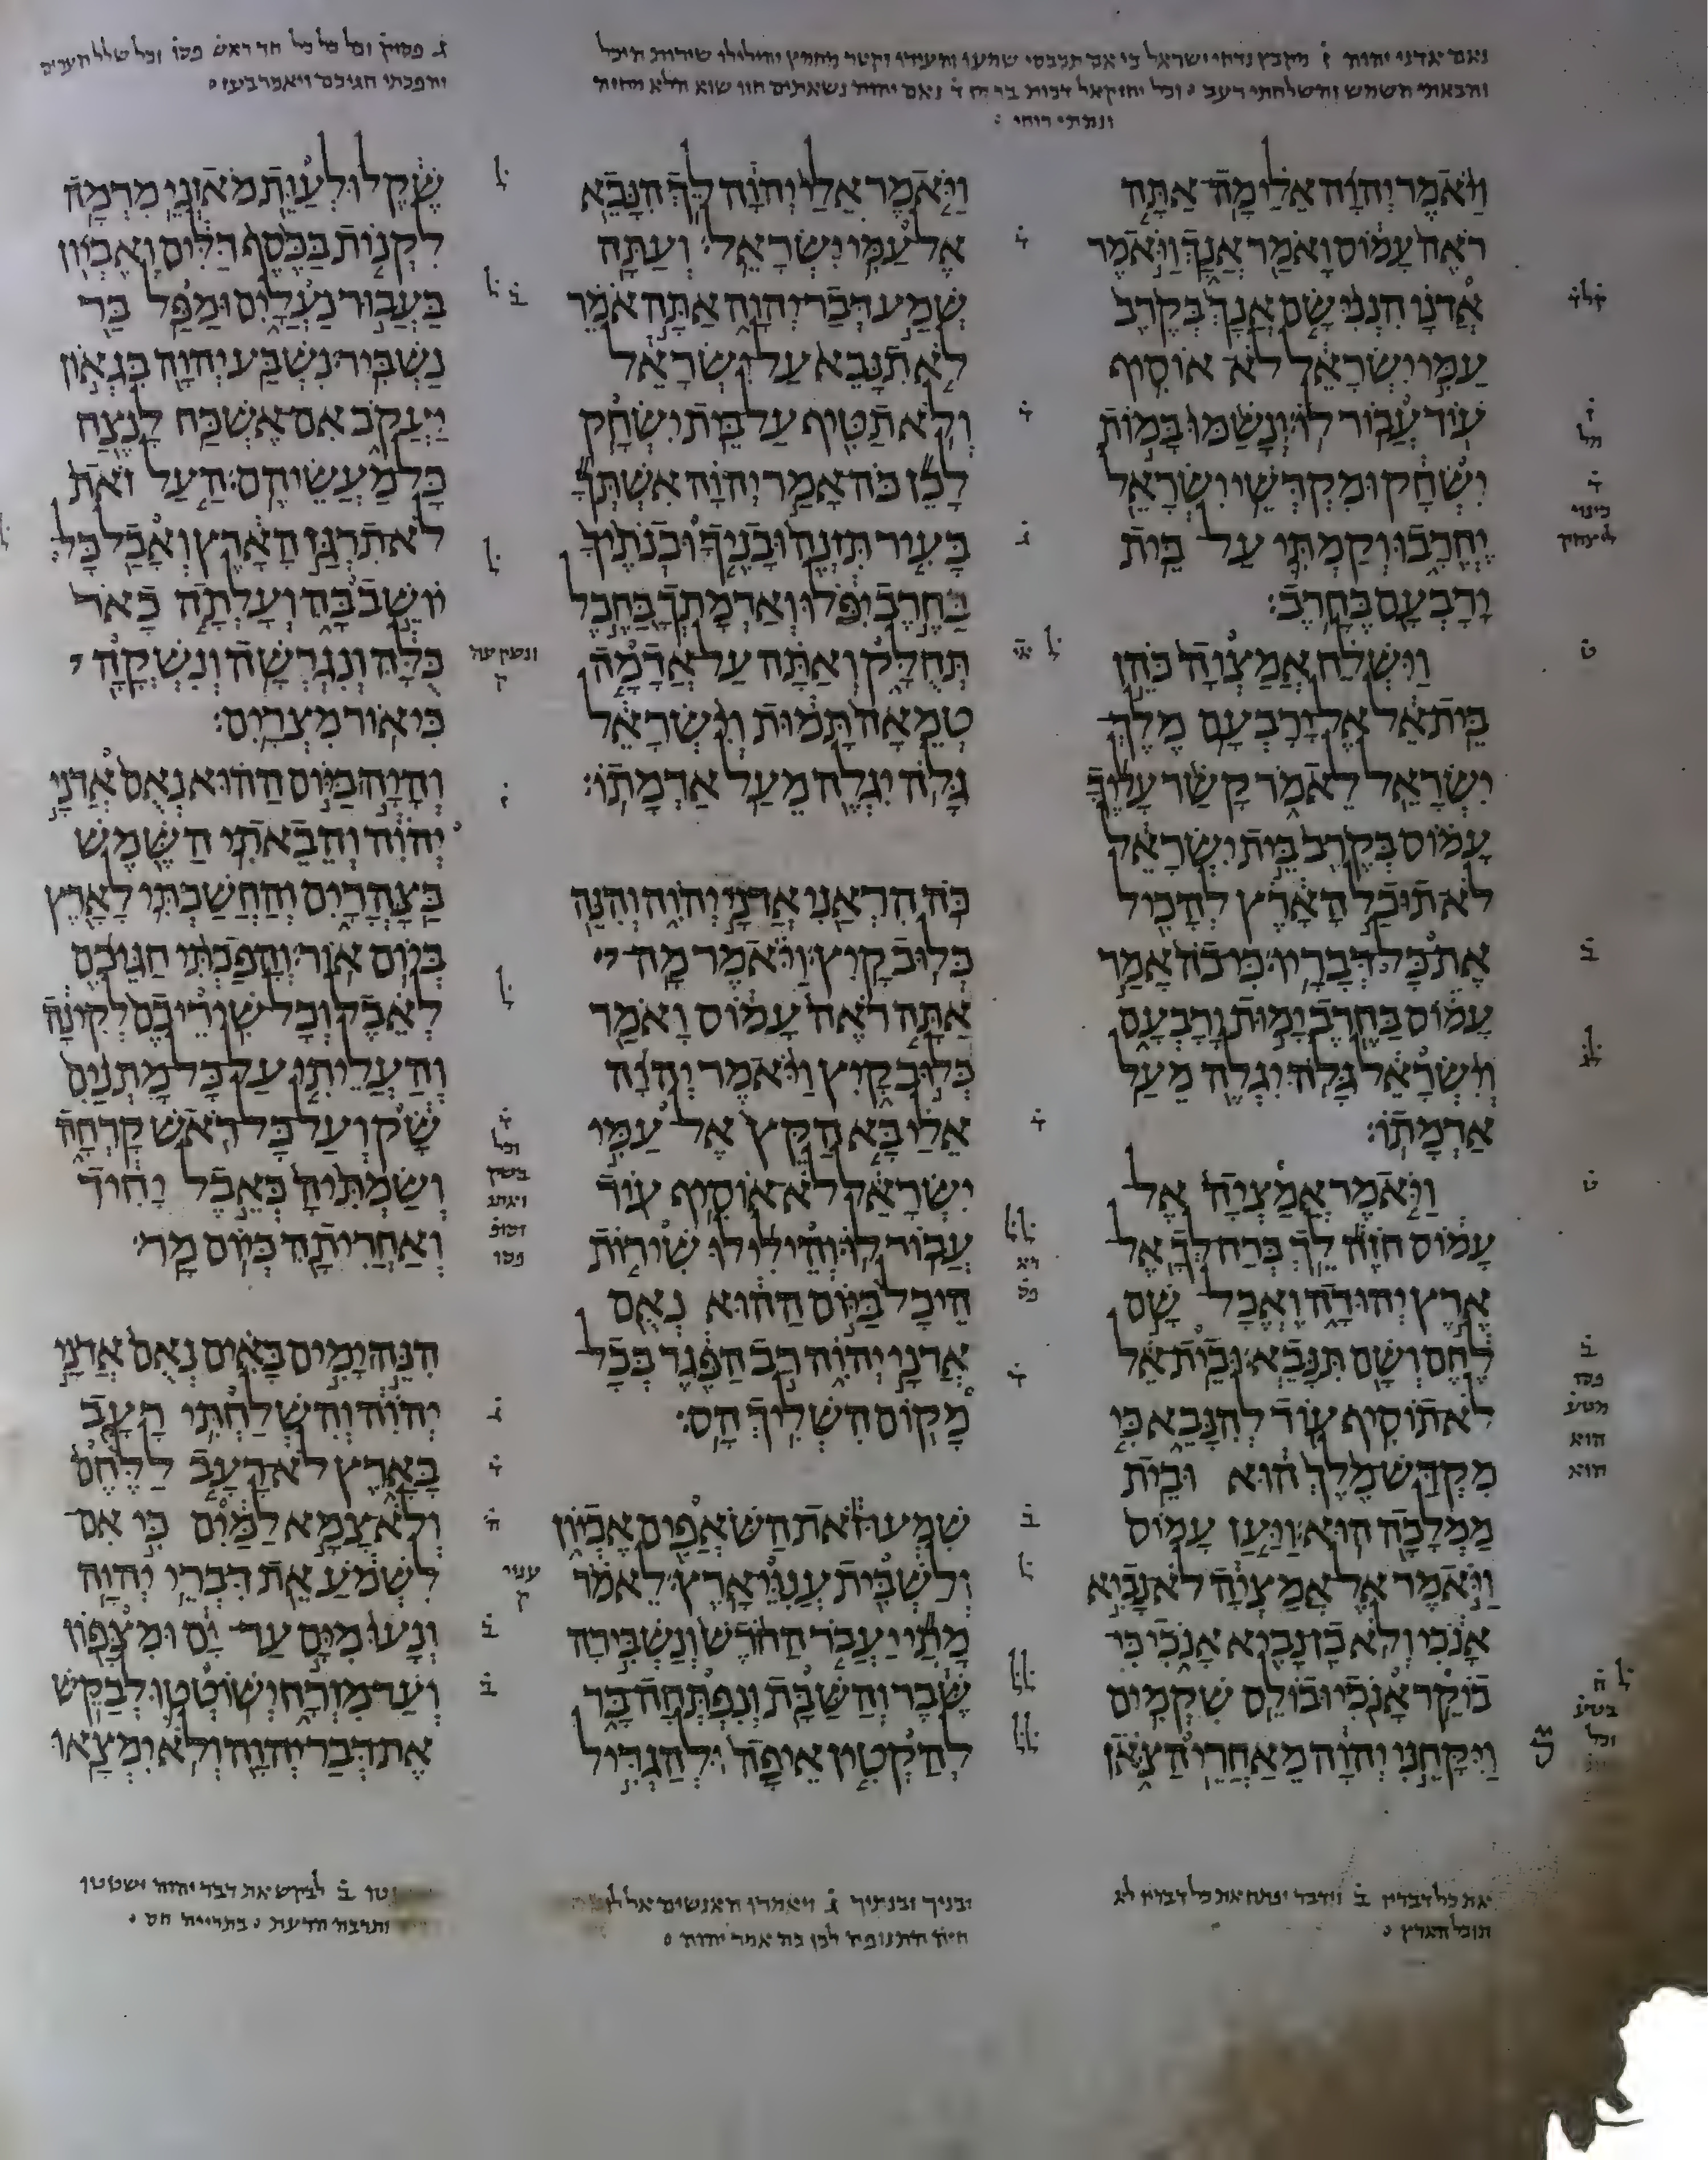 נאם אדני יהוה ז֗ מקבץ נדחי ישראל כי אם תכבסי שמעו והעידו וקטר מחמץ והילילו שירות היכל
והבאתי השמש והשלחתי רעב ׃ וכל יחזקאל דכות בר מן ד֗ נאם יהוה נשאתים חזו שוא הלא מחזה
ונתתי רוחי
ג֗ פסוק֗ וכל כל כל חד ראש֗ פסו֗ וכל שלל הערים
והפכתי חגיכם ויאמר בעז
וַיֹּאמֶר יְהוָה אֵלַי מָה אַתָּה
רֹאֶה עָמוֹס וָאֹמַר אֲנָךְ וַיֹּאמֶר
אֲדֹנָי הִנְנִי שָׂם אֲנָךְ בְּקֶרֶב
עַמִּי יִשְׂרָאֵל לֹא אוֹסִיף
עוֹד עֲבוֹר לוֹ׃ וְנָשַׁמּוּ בָּמוֹת
יִשְׂחָק וּמִקְדְּשֵׁי יִשְׂרָאֵל
יֶחֱרָבוּ וְקַמְתִּי עַל בֵּית
יָרָבְעָם בֶּחָרֶב׃
וַיִּשְׁלַח אֲמַצְיָה כֹּהֵן
בֵּית אֵל אֶל יָרָבְעָם מֶלֶךְ
יִשְׂרָאֵל לֵאמֹר קָשַׁר עָלֶיךָ
עָמוֹס בְּקֶרֶב בֵּית יִשְׂרָאֵל
לֹא תוּכַל הָאָרֶץ לְהָכִיל
אֶת כָּל דְּבָרָיו׃ כִּי כֹה אָמַר
עָמוֹס בַּחֶרֶב יָמוּת יָרָבְעָם
וְיִשְׂרָאֵל גָּלֹה יִגְלֶה מֵעַל
אַדְמָתוֹ׃
וַיֹּאמֶר אֲמַצְיָה אֶל
עָמוֹס חֹזֶה לֵךְ בְּרַח לְךָ אֶל
אֶרֶץ יְהוּדָה וֶאֱכָל שָׁם
לֶחֶם וְשָׁם תִּנָּבֵא׃ וּבֵית אֵל
לֹא תוֹסִיף עוֹד לְהִנָּבֵא כִּי
מִקְדַּשׁ מֶלֶךְ הוּא וּבֵית
מַמְלָכָה הוּא׃ וַיַּעַן עָמוֹס
וַיֹּאמֶר אֶל אֲמַצְיָה לֹא נָבִיא
אָנֹכִי וְלֹא בֶן נָבִיא אָנֹכִי כִּי
בוֹקֵר אָנֹכִי וּבוֹלֵס שִׁקְמִים
וַיִּקָּחֵנִי יְהוָה מֵאַחֲרֵי הַצֹּאן
וַיֹּאמֶר אֵלַי יְהוָה לֵךְ הִנָּבֵא
אֶל עַמִּי יִשְׂרָאֵל׃ וְעַתָּה
שְׁמַע דְּבַר יְהוָה אַתָּה אֹמֵר
לֹא תִנָּבֵא עַל יִשְׂרָאֵל
וְלֹא תַטִּיף עַל בֵּית יִשְׂחָק
לָכֵן כֹּה אָמַר יְהוָה אִשְׁתְּךָ
בָּעִיר תִּזְנֶה וּבָנֶיךָ וּבְנֹתֶיךָ
בַּחֶרֶב יִפֹּלוּ וְאַדְמָתְךָ בַּחֶבֶל
תְּחֻלָּק וְאַתָּה עַל אֲדָמָה
טְמֵאָה תָּמוּת וְיִשְׂרָאֵל
גָּלֹה יִגְלֶה מֵעַל אַדְמָתוֹ׃
כֹּה הִרְאַנִי אֲדֹנָי יְהוִה וְהִנֵּה
כְּלוּב קָיִץ׃ וַיֹּאמֶר מָה
אַתָּה רֹאֶה עָמוֹס וָאֹמַר
כְּלוּב קָיִץ וַיֹּאמֶר יְהוָה
אֵלַי בָּא הַקֵּץ אֶל עַמִּי
יִשְׂרָאֵל לֹא אוֹסִיף עוֹד
עֲבוֹר לוֹ׃ וְהֵילִילוּ שִׁירוֹת
הֵיכָל בַּיּוֹם הַהוּא נְאֻם
אֲדֹנָי יְהוִה רַב הַפֶּגֶר בְּכָל
מָקוֹם הִשְׁלִיךְ הָס׃
שִׁמְעוּ זֹאת הַשֹּׁאֲפִים אֶבְיוֹן
וְלַשְׁבִּית עֲנִוֵּי אָרֶץ׃ לֵאמֹר
מָתַי יַעֲבֹר הַחֹדֶשׁ וְנַשְׁבִּירָה
שֶּׁבֶר וְהַשַּׁבָּת וְנִפְתְּחָה בָּר
לְהַקְטִין אֵיפָה וּלְהַגְדִּיל
שֶׁקֶל וּלְעַוֵּת מֹאזְנֵי מִרְמָה
לִקְנוֹת בַּכֶּסֶף דַּלִּים וְאֶבְיוֹן
בַּעֲבוּר נַעֲלָיִם וּמַפַּל בַּר
נַשְׁבִּיר׃ נִשְׁבַּע יְהוָה בִּגְאוֹן
יַעֲקֹב אִם אֶשְׁכַּח לָנֶצַח
כָּל מַעֲשֵׂיהֶם׃ הַעַל זֹאת
לֹא תִרְגַּז הָאָרֶץ וְאָבַל כָּל
יוֹשֵׁב בָּהּ וְעָלְתָה כָאֹר
כֻּלָּהּ וְנִגְרְשָׁה וְנִשְׁקָה
כִּיאוֹר מִצְרָיִם׃
וְהָיָה בַּיּוֹם הַהוּא נְאֻם אֲדֹנָי
יְהוִה וְהֵבֵאתִי הַשֶּׁמֶשׁ
בַּצָּהֳרָיִם וְהַחֲשַׁכְתִּי לָאָרֶץ
בְּיוֹם אוֹר׃ וְהָפַכְתִּי חַגֵּיכֶם
לְאֵבֶל וְכָל שִׁירֵיכֶם לְקִינָה
וְהַעֲלֵיתִי עַל כָּל מָתְנַיִם
שָׂק וְעַל כָּל רֹאשׁ קָרְחָה
וְשַׂמְתִּיהָ כְּאֵבֶל יָחִיד
וְאַחֲרִיתָהּ כְּיוֹם מָר׃
הִנֵּה יָמִים בָּאִים נְאֻם אֲדֹנָי
יְהוִה וְהִשְׁלַחְתִּי רָעָב
בָּאָרֶץ לֹא רָעָב לַלֶּחֶם
וְלֹא צָמָא לַמַּיִם כִּי אִם
לִשְׁמֹעַ אֵת דִּבְרֵי יְהוָה
וְנָעוּ מִיָּם עַד יָם וּמִצָּפוֹן
וְעַד מִזְרָח יְשׁוֹטְטוּ לְבַקֵּשׁ
אֶת דְּבַר יְהוָה וְלֹא יִמְצָאוּ
את כל דבריו ב֗ וידבר יפתח את כל דבריו לא
תוכל הארץ
ובניך ובנתיך ג֗ ויאמרו האנשים אל לוט
חית התנופה לכן כה אמר יהוה
ב֗ לבקש את דבר יהוה ישטטו
ותרבה הדעת ׃ בתריה חס